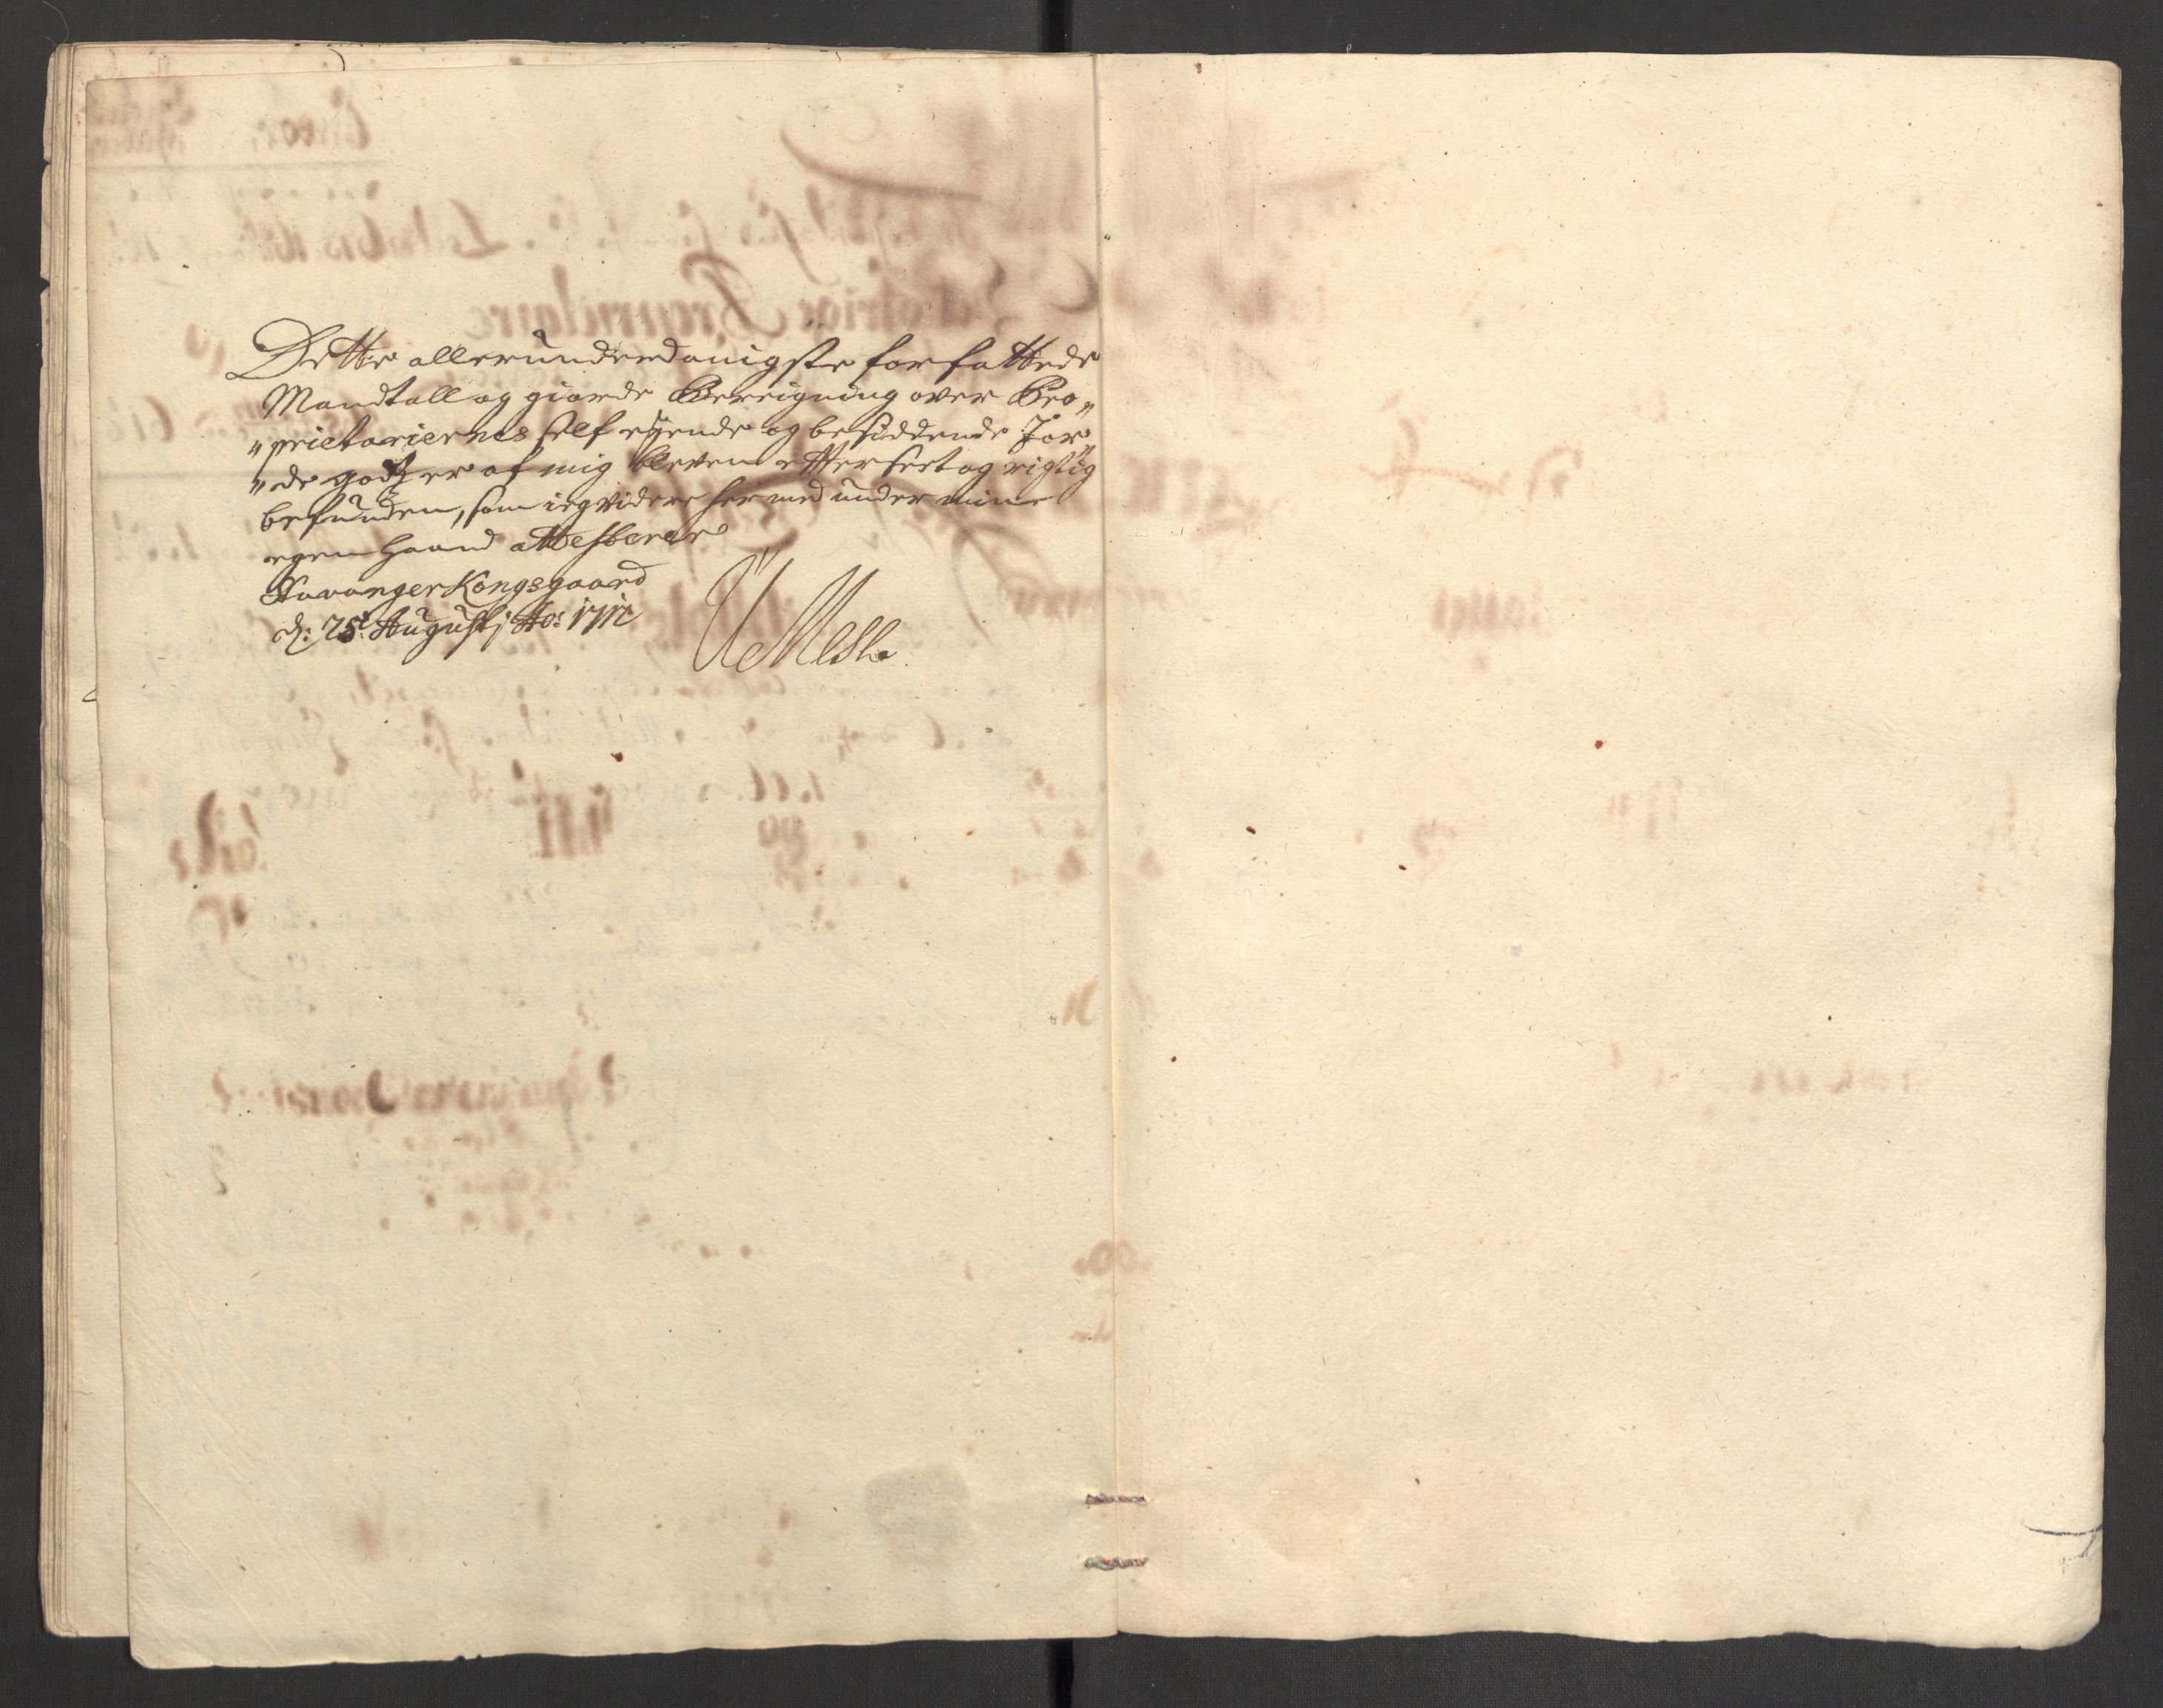 Dette allerunderdanigste forfattede
Mandtall og giorde Bereigning over Pro„
„prietariernes self eyende og besiddende Jor„
„de godtz er af mig bleven efterseet og rigtig
befunden, som ieg videre her med under min
egen haand attesterer
Stavanger Kongsgaard
d: 25t August: Ao: 1712